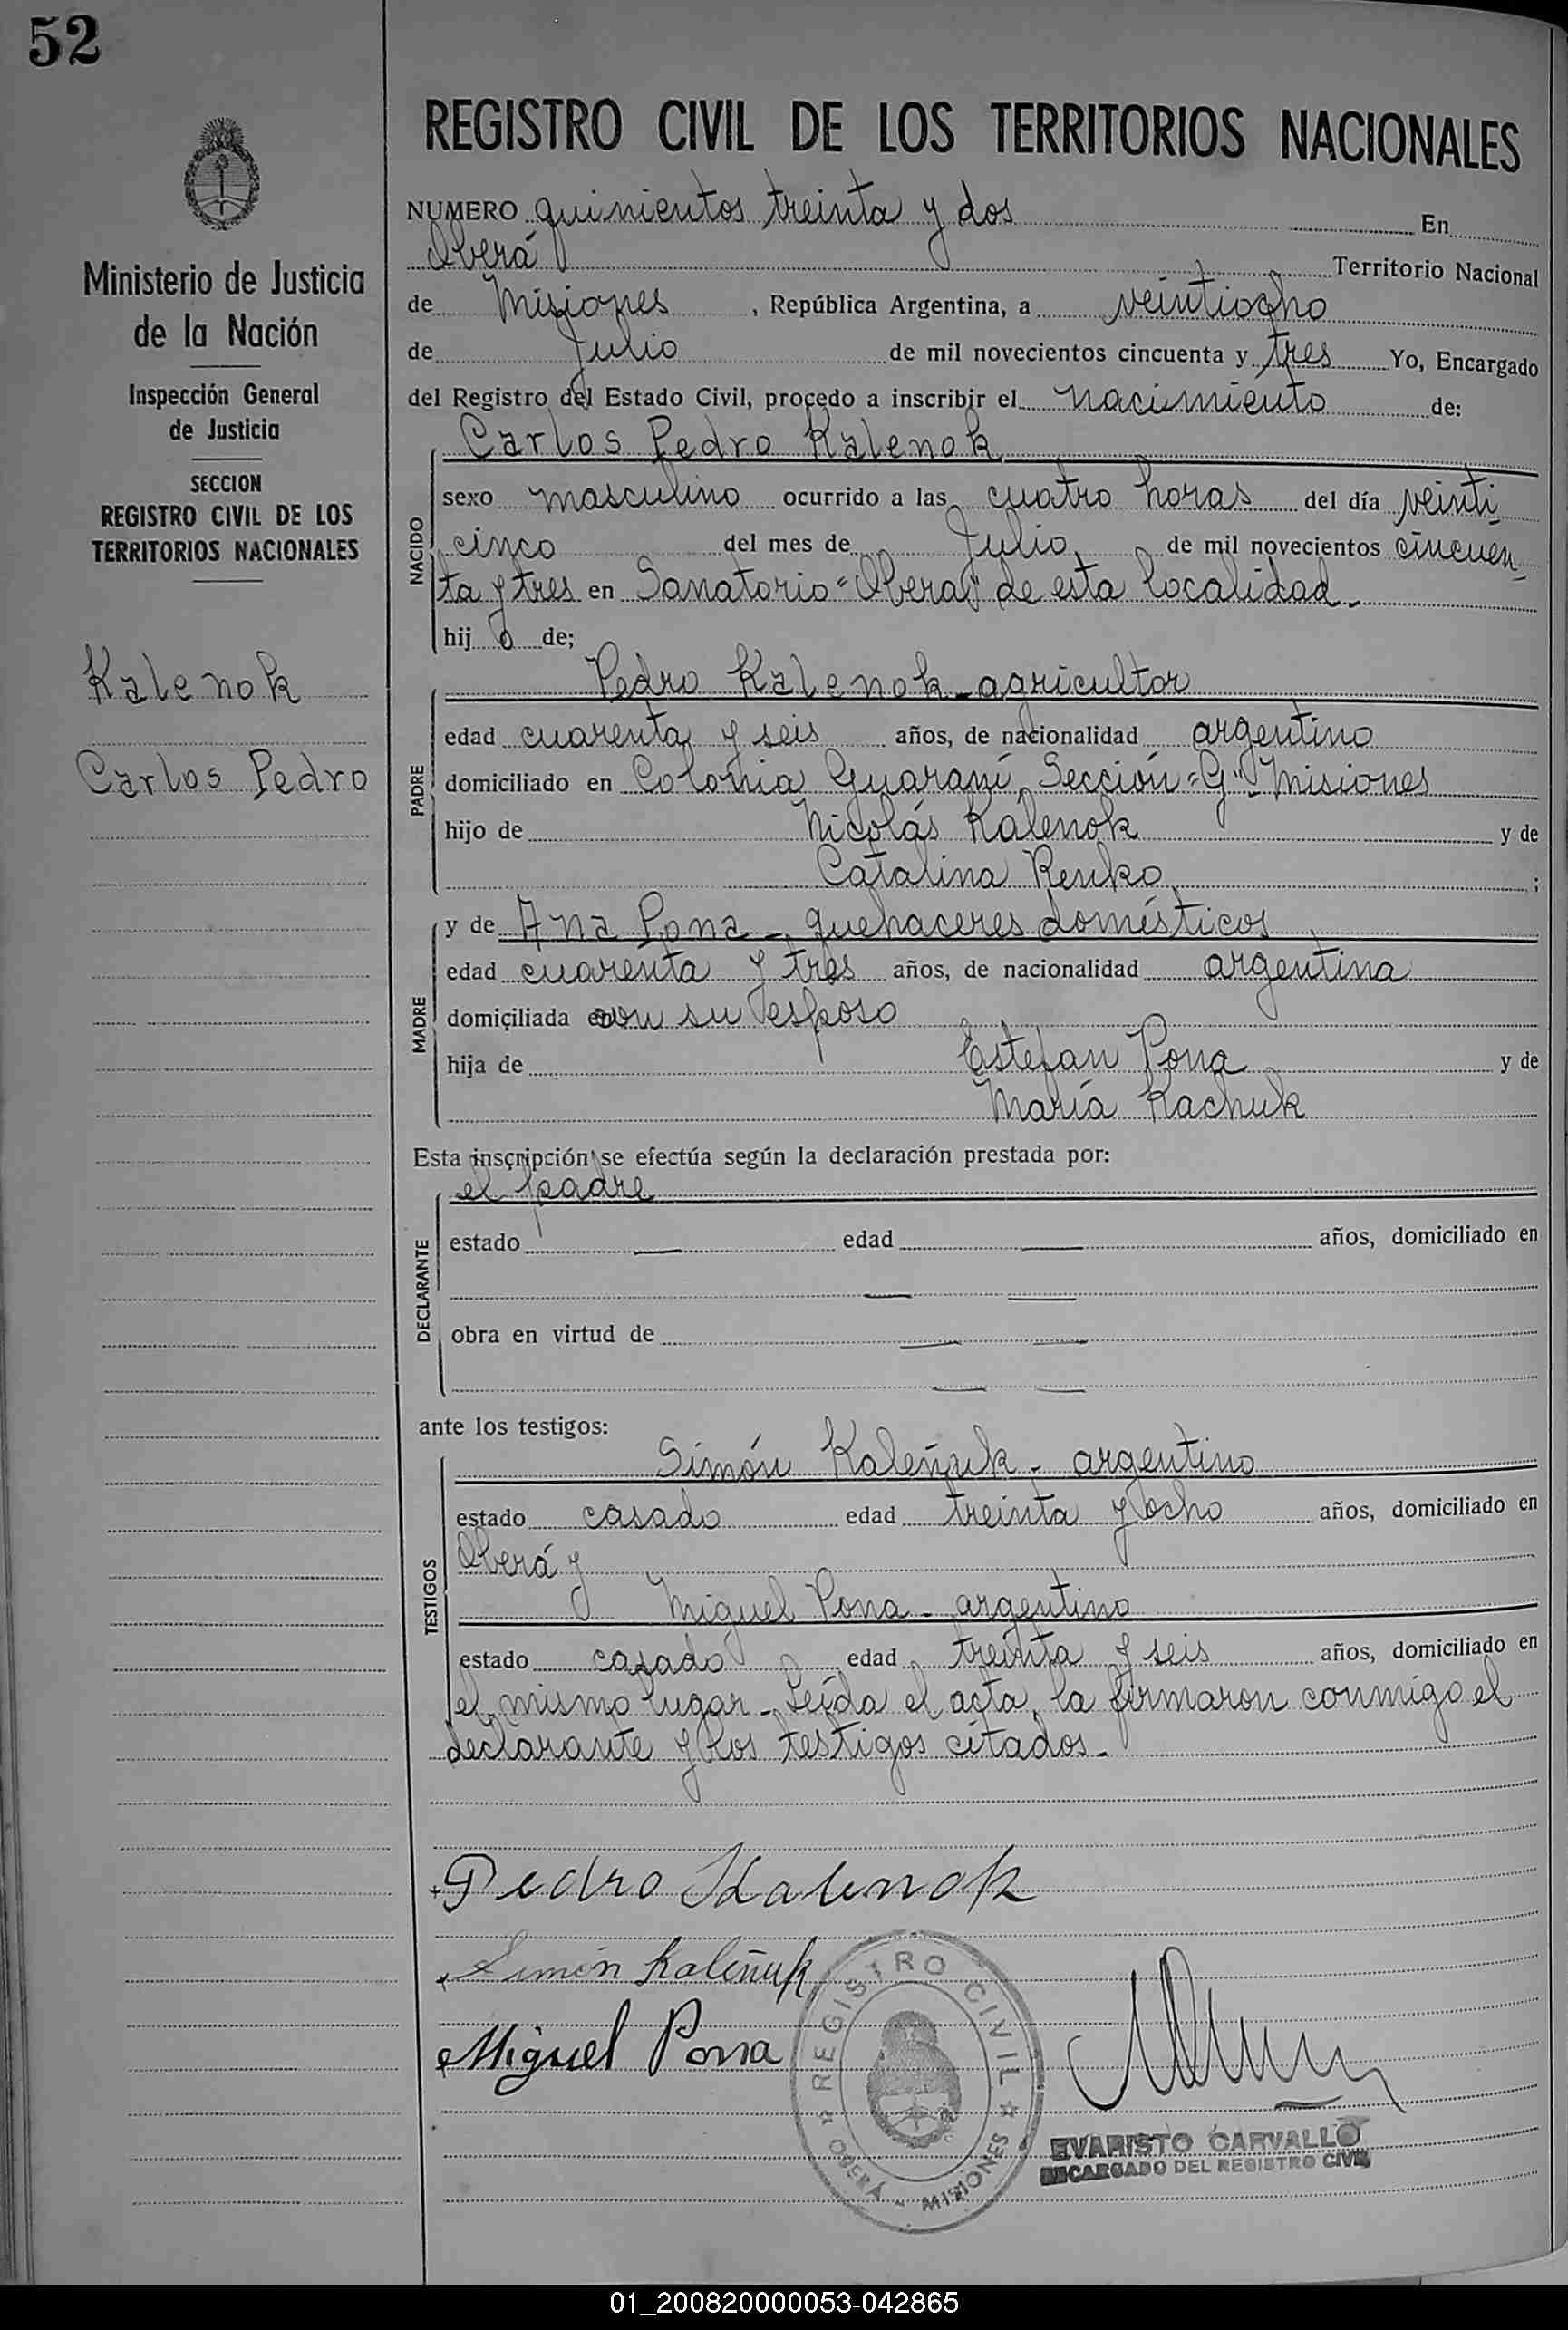 52
Ministerio de Justicia
de la Nación
Inspección General
de Justicia
SECCION
REGISTRO CIVIL DE LOS
TERRITORIOS NACIONALES
Kalenok
Carlos Pedro
REGISTRO CIVIL DE LOS TERRITORIOS NACIONALES
NUMERO quinientos treinta y dos En
Oberá Territorio Nacional
de Misiones, República Argentina, a veintiocho
de Julio de mil novecientos cincuenta y tres Yo, Encargado
del Registro del Estado Civil, procedo a inscribir el nacimiento de:
Carlos Pedro Kalenok
NACIDO
sexo masculino ocurrido a las cuatro horas del día veinti
cinco del mes de Julio de mil novecientos cincuen
ta y tres en Sanatorio "Oberá" de esta localidad.
hijo de;
PADRE
Pedro Kalenok - agricultor
edad cuarenta y seis años, de nacionalidad argentino
domiciliado en Colonia Guaraní, Sección "G" Misiones
hijo de Nicolás Kalenok y de
Catalina Renko;
MADRE
y de Ana Pona - quehaceres domésticos
edad cuarenta y tres años, de nacionalidad argentina
domiciliada con su esposo
hija de Estefan Pona y de
María Kachuk
Esta inscripción se efectúa según la declaración prestada por:
DECLARANTE
el padre
estado — edad — años, domiciliado en
— —
obra en virtud de — —
— —
ante los testigos:
TESTIGOS
Simón Kaleñuk - argentino
estado casado edad treinta y ocho años, domiciliado en
Oberá y
Miguel Pona - argentino
estado casado edad treinta y seis años, domiciliado en
el mismo lugar - Leída el acta, la firmaron conmigo el
declarante y los testigos citados -
Pedro Kalenok
Simón Kaleñuk
Miguel Pona
REGISTRO CIVIL
OBERÁ - MISIONES
EVARISTO CARVALLO
ENCARGADO DEL REGISTRO CIVIL
01_200820000053-042865